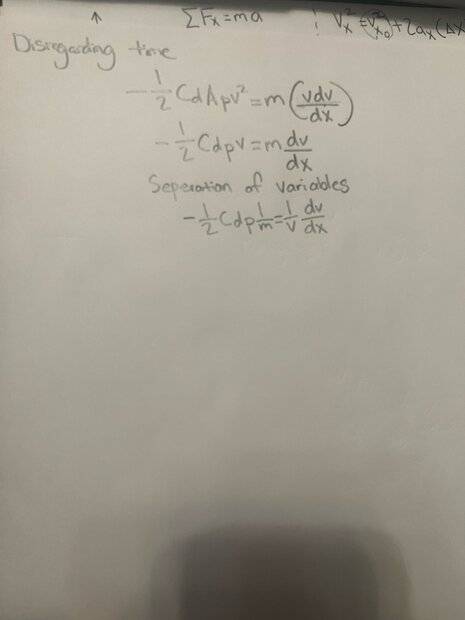 ↑ ΣFx=ma ! Vx²=(Vx0²)+2ax(Δx
Disregarding time
-1/2 CdApv²=m(vdv/dx)
-1/2 Cdpv=m dv/dx
Seperation of variables
-1/2 Cdp 1/m=1/v dv/dx